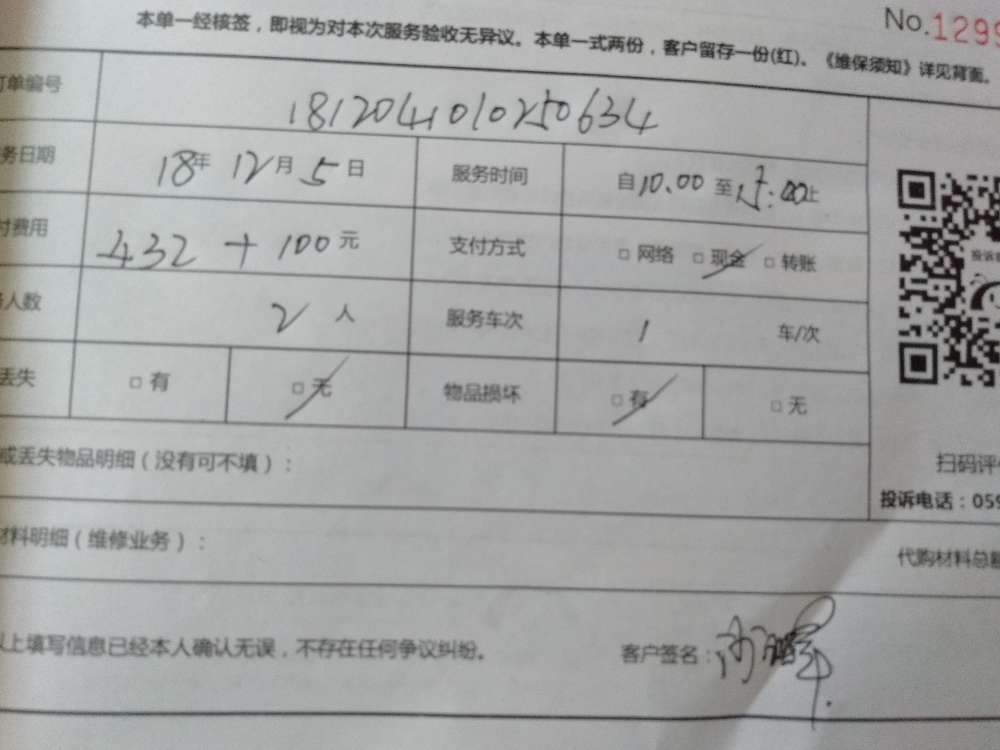 本单一经核签，即视为对本次服务验收无异议。本单一式两份，客户留存一份(红)。《维保须知》详见背面。
No.1299
订单编号 181204010250634
务日期 18年 12月 5日 服务时间 自10.00 至 止
付费用 432 + 100元 支付方式 □ 网络 □ 现金 □ 转账
人数 2 人 服务车次 1 车/次
丢失 □ 有 □ 无 物品损坏 □ 有 □ 无
投诉
或丢失物品明细（没有可不填）：
扫码评
投诉电话：059
材料明细（维修业务）：
代购材料总额
以上填写信息已经本人确认无误，不存在任何争议纠纷。 客户签名：